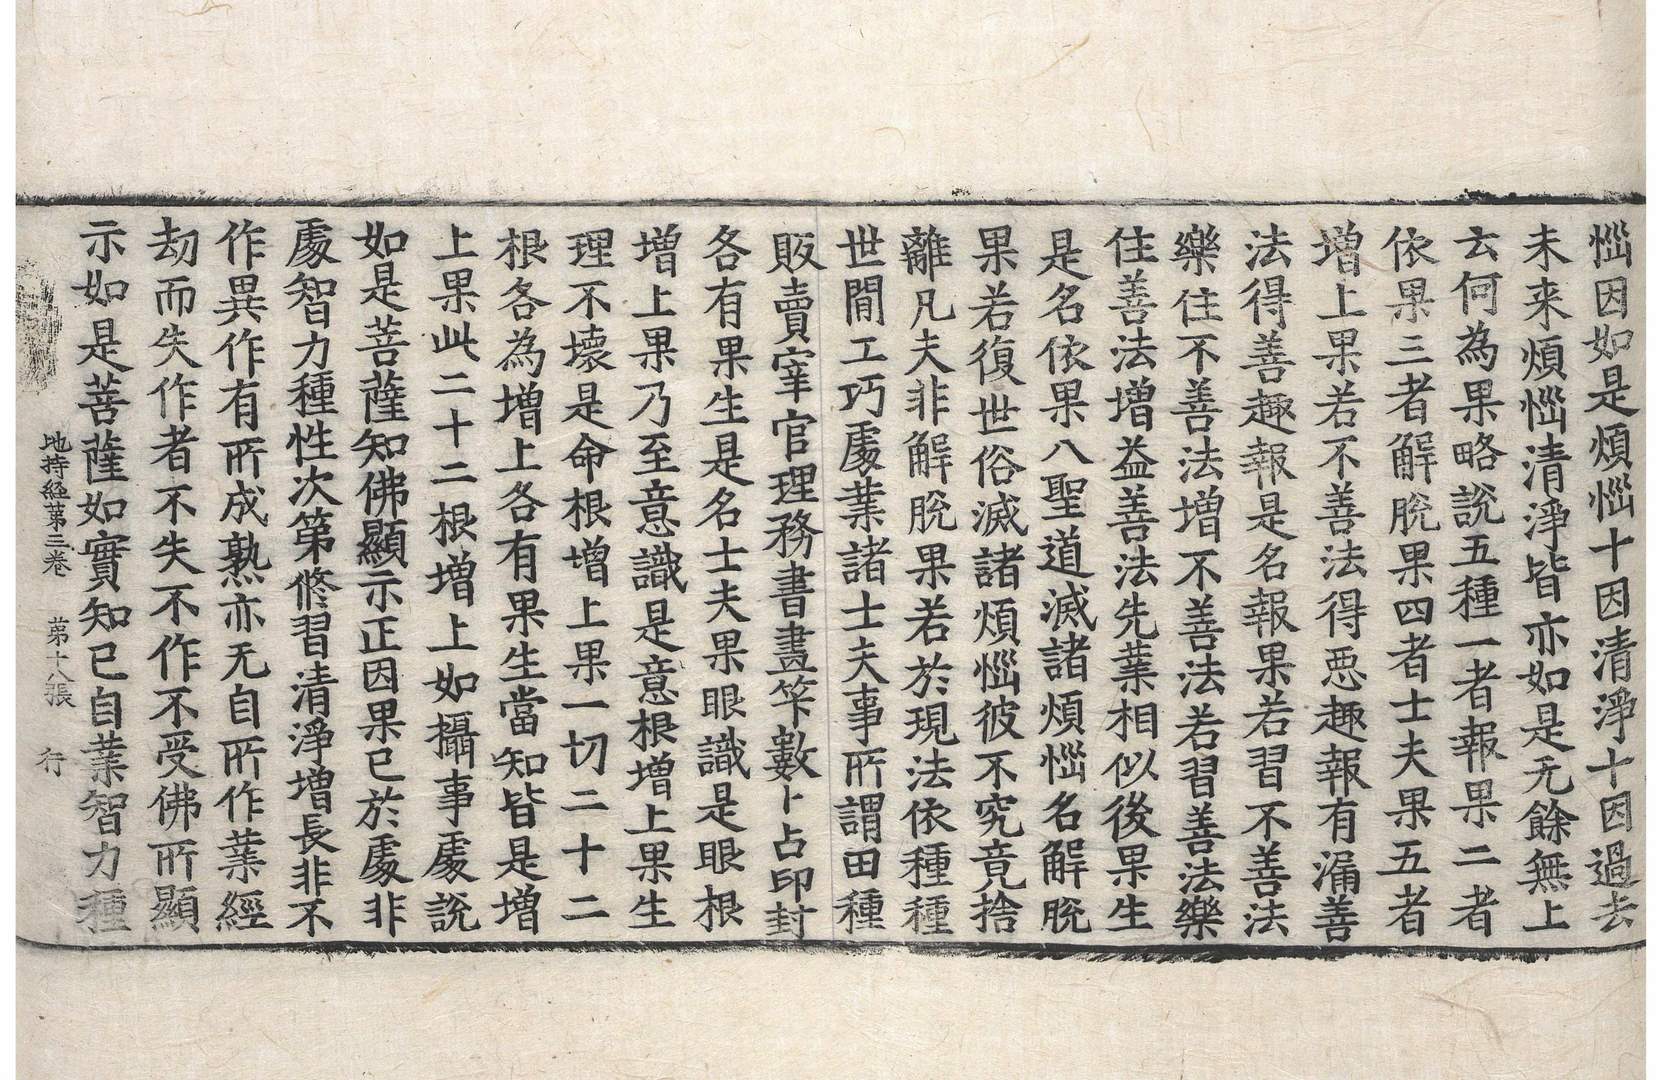 惱因如是煩惱十因清淨十因過去
未来煩惱清淨皆亦如是无餘無上
云何為果略說五種一者報果二者
依果三者解脫果四者士夫果五者
增上果若不善法得惡趣報有漏善
法得善趣報是名報果若習不善法
樂住不善法增不善法若習善法樂
住善法增益善法先業相似後果生
是名依果八聖道滅諸煩惱名解脫
果若復世俗滅諸煩惱彼不究竟捨
離凡夫非解脫果若於現法依種種
世間工巧處業諸士夫事所謂田種
販賣宰官理務書畫筭數卜占印封
各有果生是名士夫果眼識是眼根
增上果乃至意識是意根增上果生
理不壞是命根增上果一切二十二
根各為增上各有果生當知皆是增
上果此二十二根增上如攝事處說
如是菩薩知佛顯示正因果已於處非
處智力種性次第修習清淨增長非不
作異作有所成熟亦无自所作業經
劫而失作者不失不作不受佛所顯
示如是菩薩如實知已自業智力種
地持経第三卷 第十八張 行